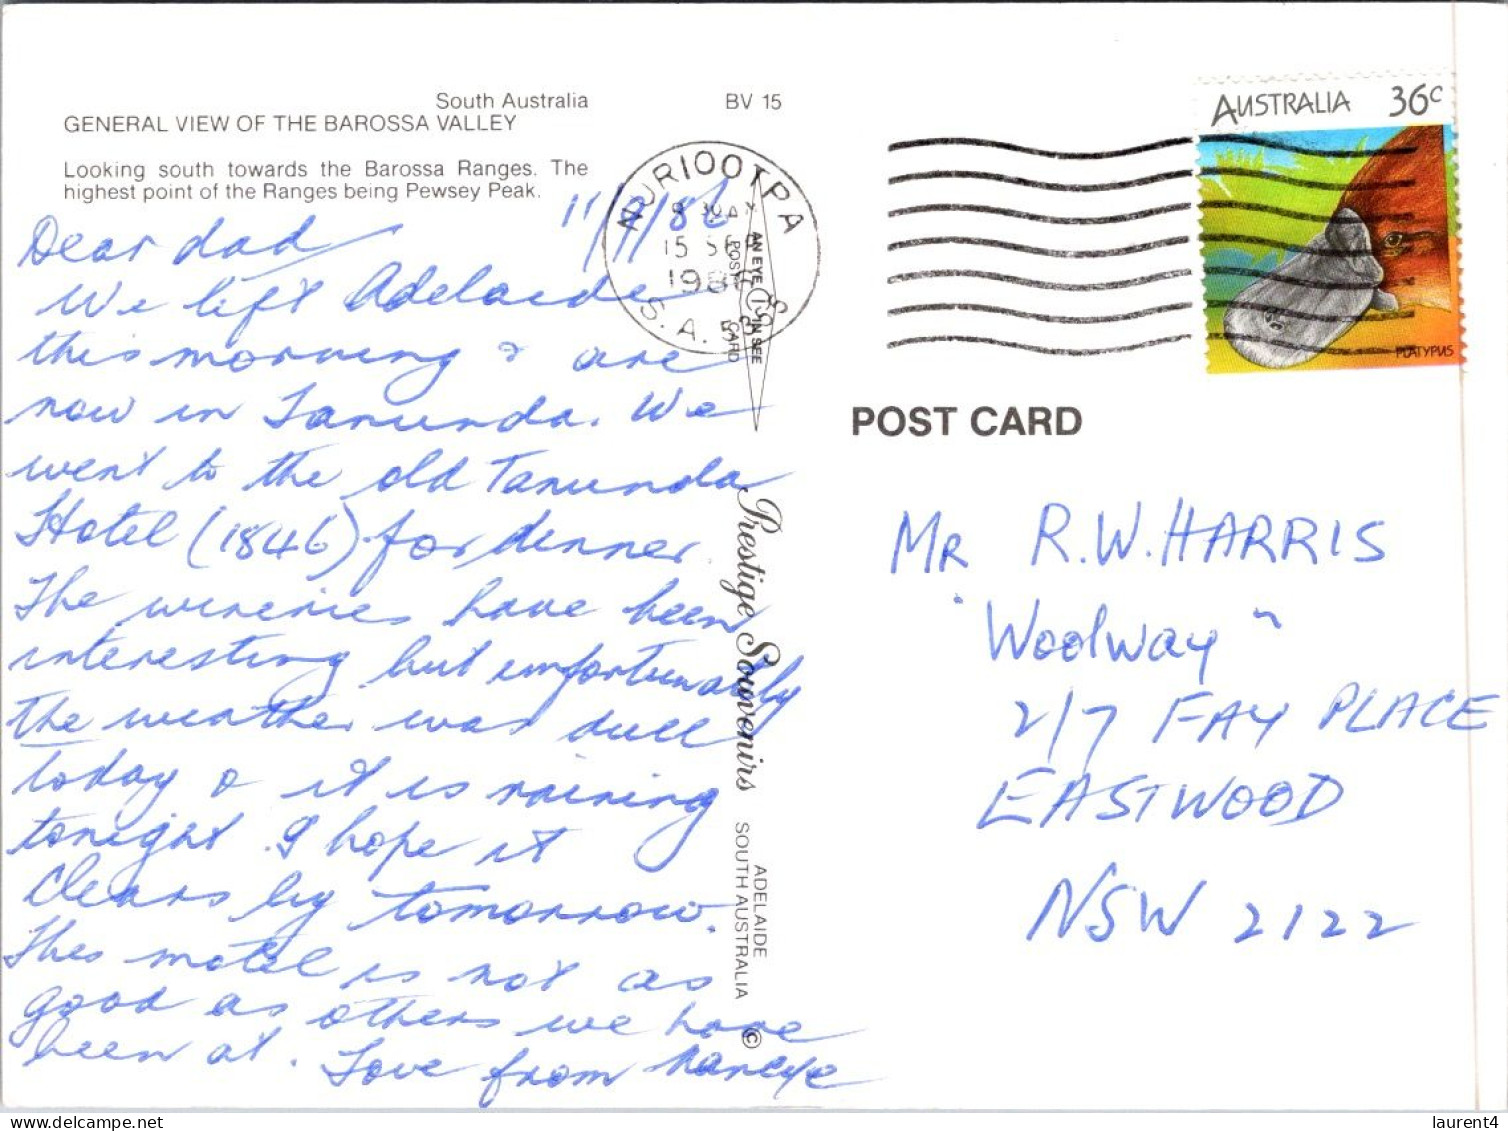 South Australia
GENERAL VIEW OF THE BAROSSA VALLEY
Looking south towards the Barossa Ranges. The
highest point of the Ranges being Pewsey Peak.
BV 15
11/9/86
Dear dad
We left Adelaide
this morning & are
now in Tanunda. We
went to the old Tanunda
Hotel (1846) for dinner
The wineries have been
interesting but unfortunately
the weather was dull
today & it is raining
tonight. I hope it
clears by tomorrow.
This motel is not as
good as others we have
been at. Love from
NURIOOTPA
15 SEP
198
S.A. 53
POST CARD
AN EYE IN SEE
Prestige Souvenirs
ADELAIDE
SOUTH AUSTRALIA
©
AUSTRALIA 36c
PLATYPUS
POST CARD
MR R.W. HARRIS
"Woolway"
2/7 FAY PLACE
EASTWOOD
NSW 2122
laurent4